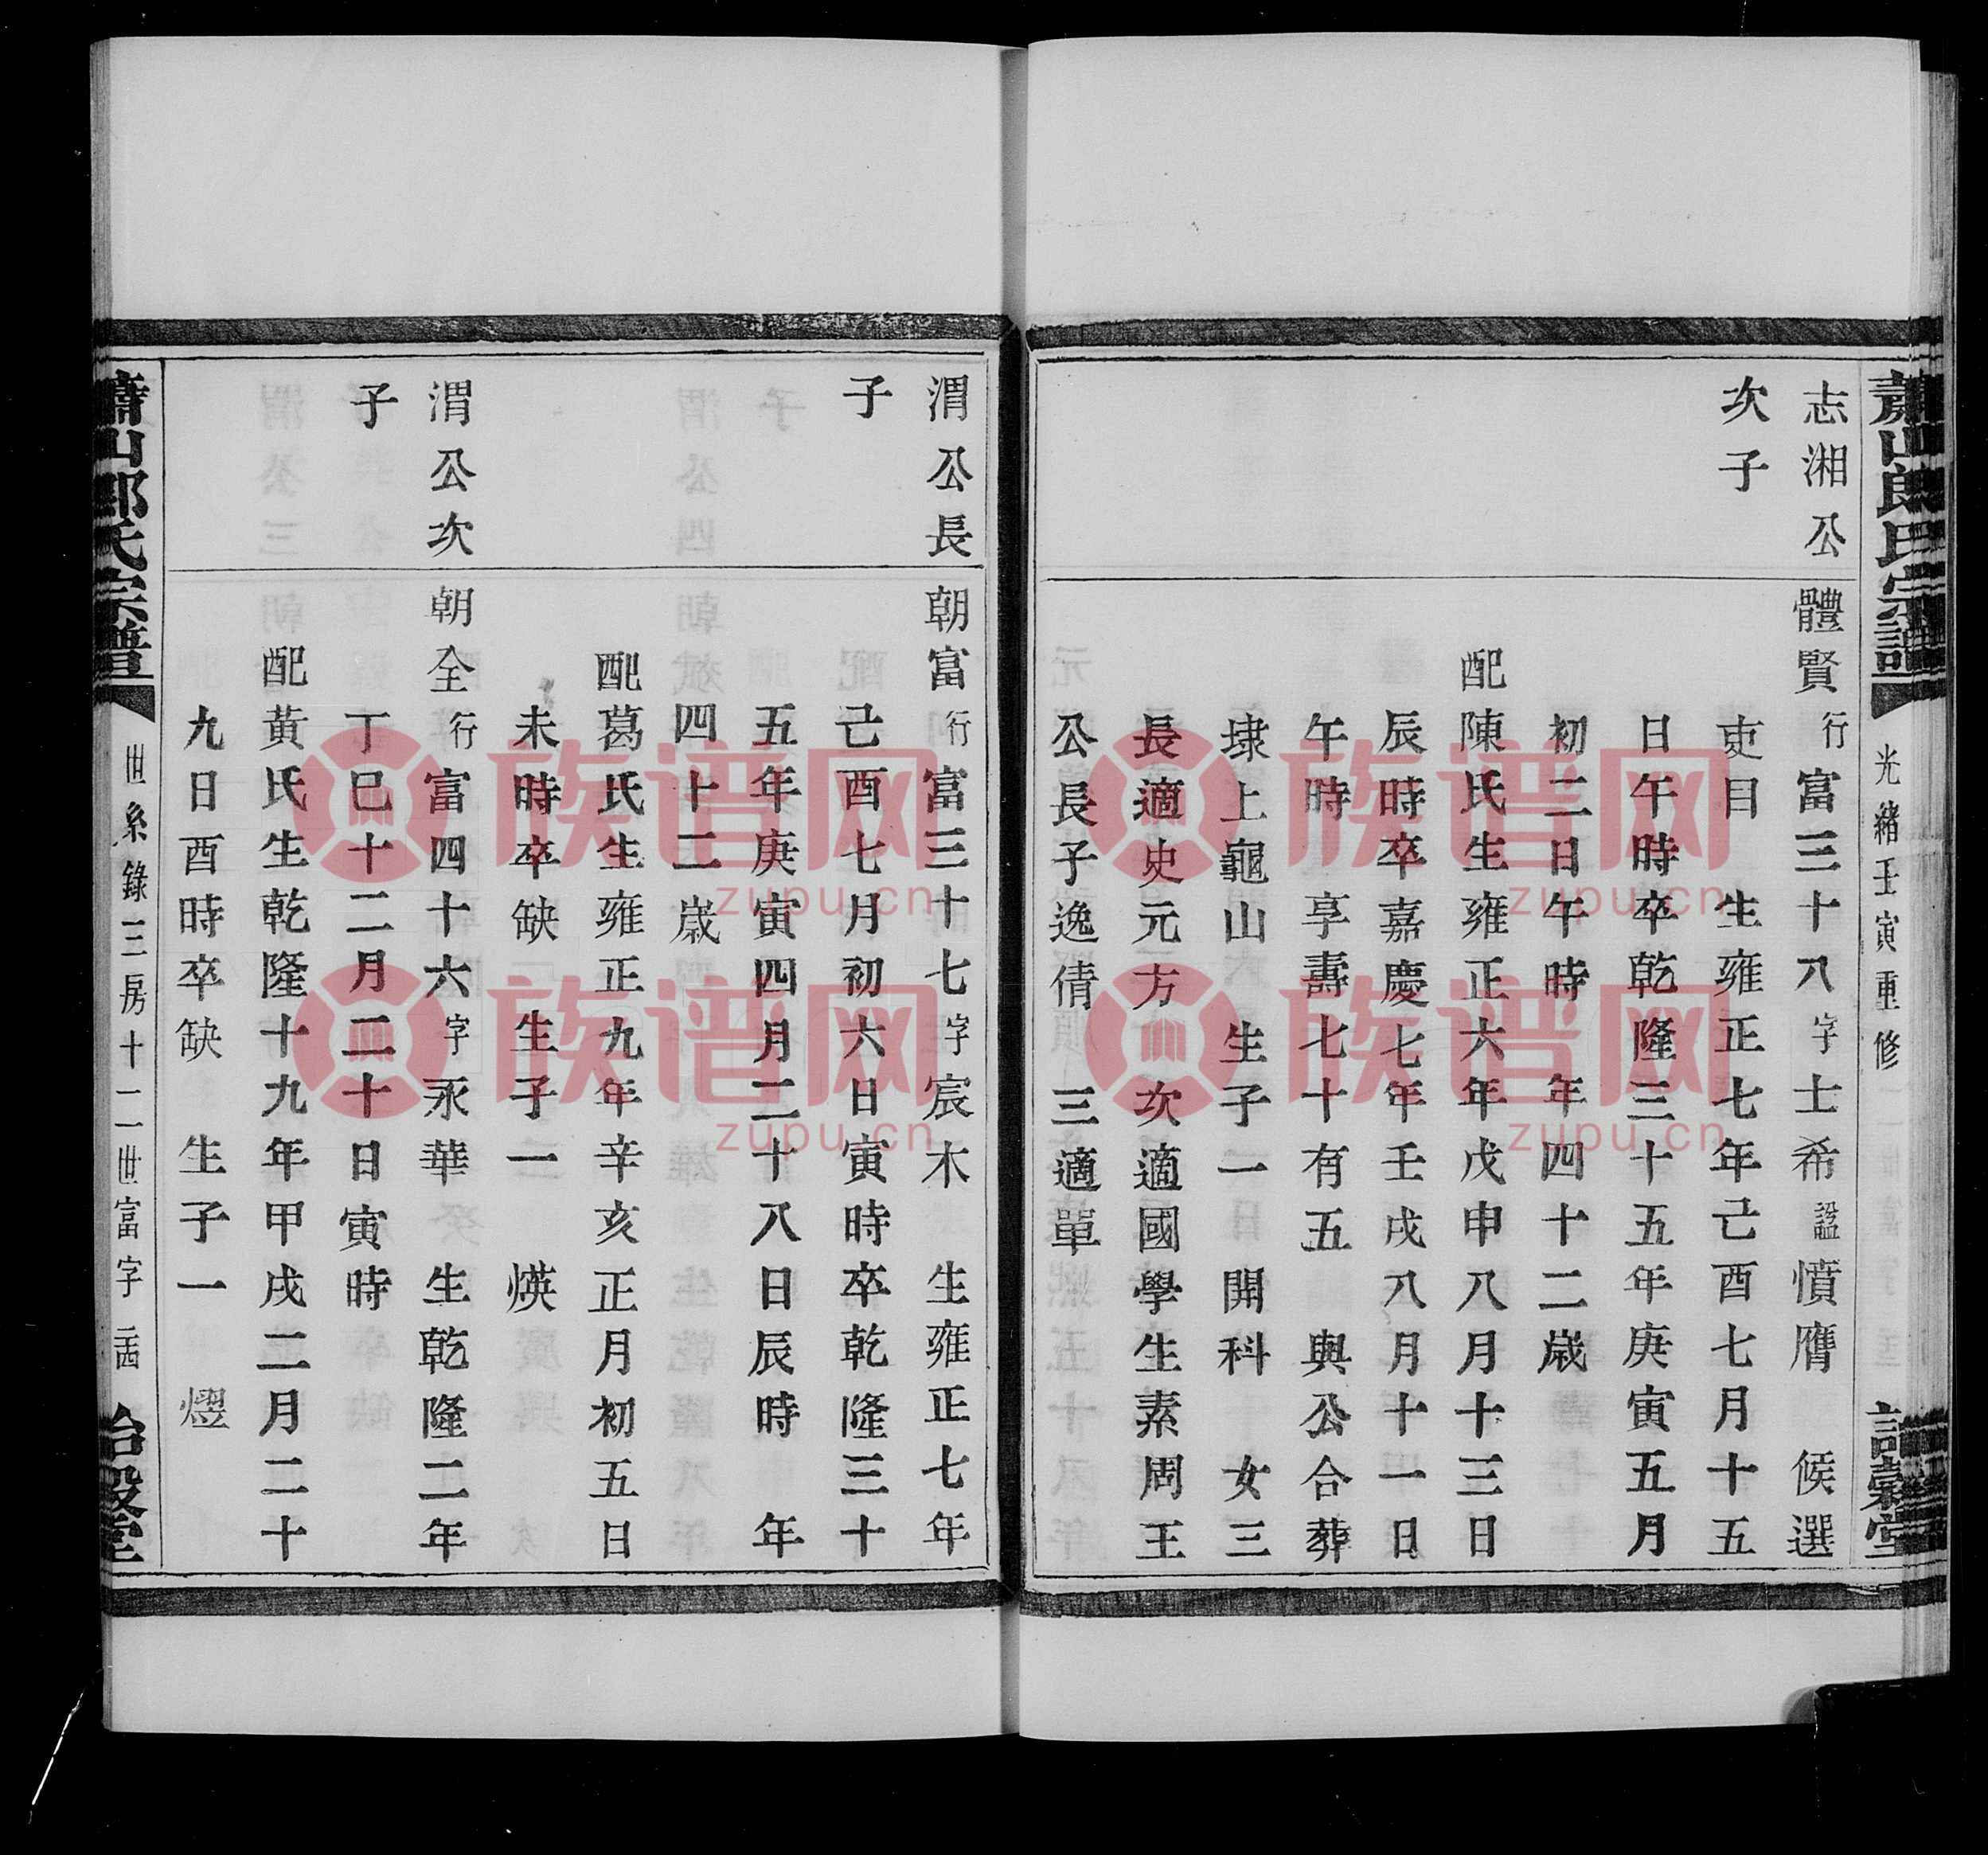 蕭山郎氏宗譜
光緒壬寅重修
詒穀堂
志湘公
次子
體賢行富三十八字士希諡憤膺　候選
吏目　生雍正七年己酉七月十五
日午時卒乾隆三十五年庚寅五月
初二日午時　年四十二歲
配陳氏生雍正六年戊申八月十三日
辰時卒嘉慶七年壬戌八月十一日
午時　享壽七十有五　與公合葬
埭上龜山　生子一　開科　女三
長適史元方　次適國學生素周王
公長子逸倩　三適單
渭公長
子
朝富行富三十七字宸木　生雍正七年
己酉七月初六日寅時卒乾隆三十
五年庚寅四月二十八日辰時　年
四十二歲
配葛氏生雍正九年辛亥正月初五日
未時卒缺　生子一　煐
渭公次
子
朝全行富四十六字永華　生乾隆二年
丁巳十二月二十日寅時
配黃氏生乾隆十九年甲戌二月二十
九日酉時卒缺　生子一　熤
蕭山郎氏宗譜
世系錄三房十二世富字
詒穀堂
族谱网
zupu.cn
族谱网
zupu.cn
族谱网
zupu.cn
族谱网
zupu.cn